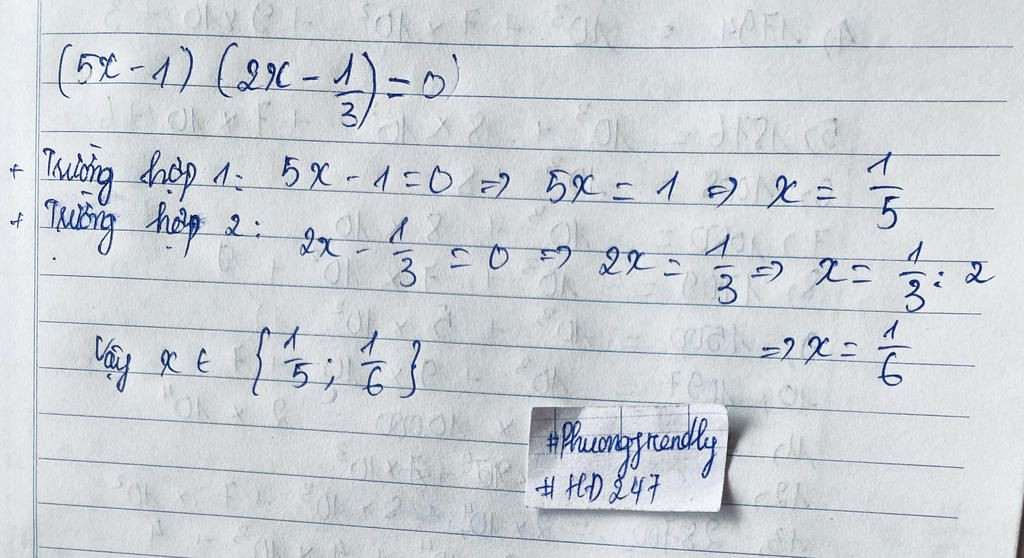 (5x - 1) (2x - 1/3) = 0
+ Trường hợp 1: 5x - 1 = 0 => 5x = 1 => x = 1/5
+ Trường hợp 2: 2x - 1/3 = 0 => 2x = 1/3 => x = 1/3 : 2
=> x = 1/6
Vậy x ∈ {1/5; 1/6}
#Phuongfrendly
#HD247